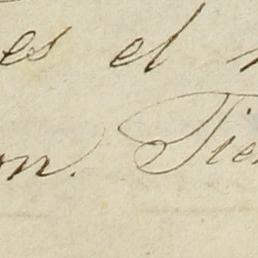 es el
on. Tien